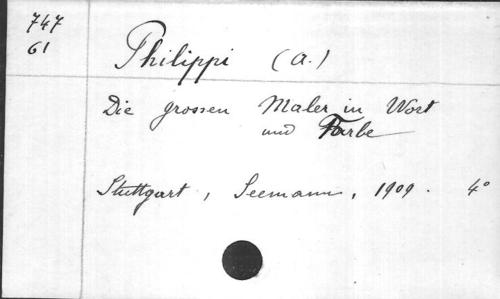 747
61
Philippi (A.)
Die grossen Maler in Wort
und Farbe
Stuttgart, Seemann, 1909. 4°